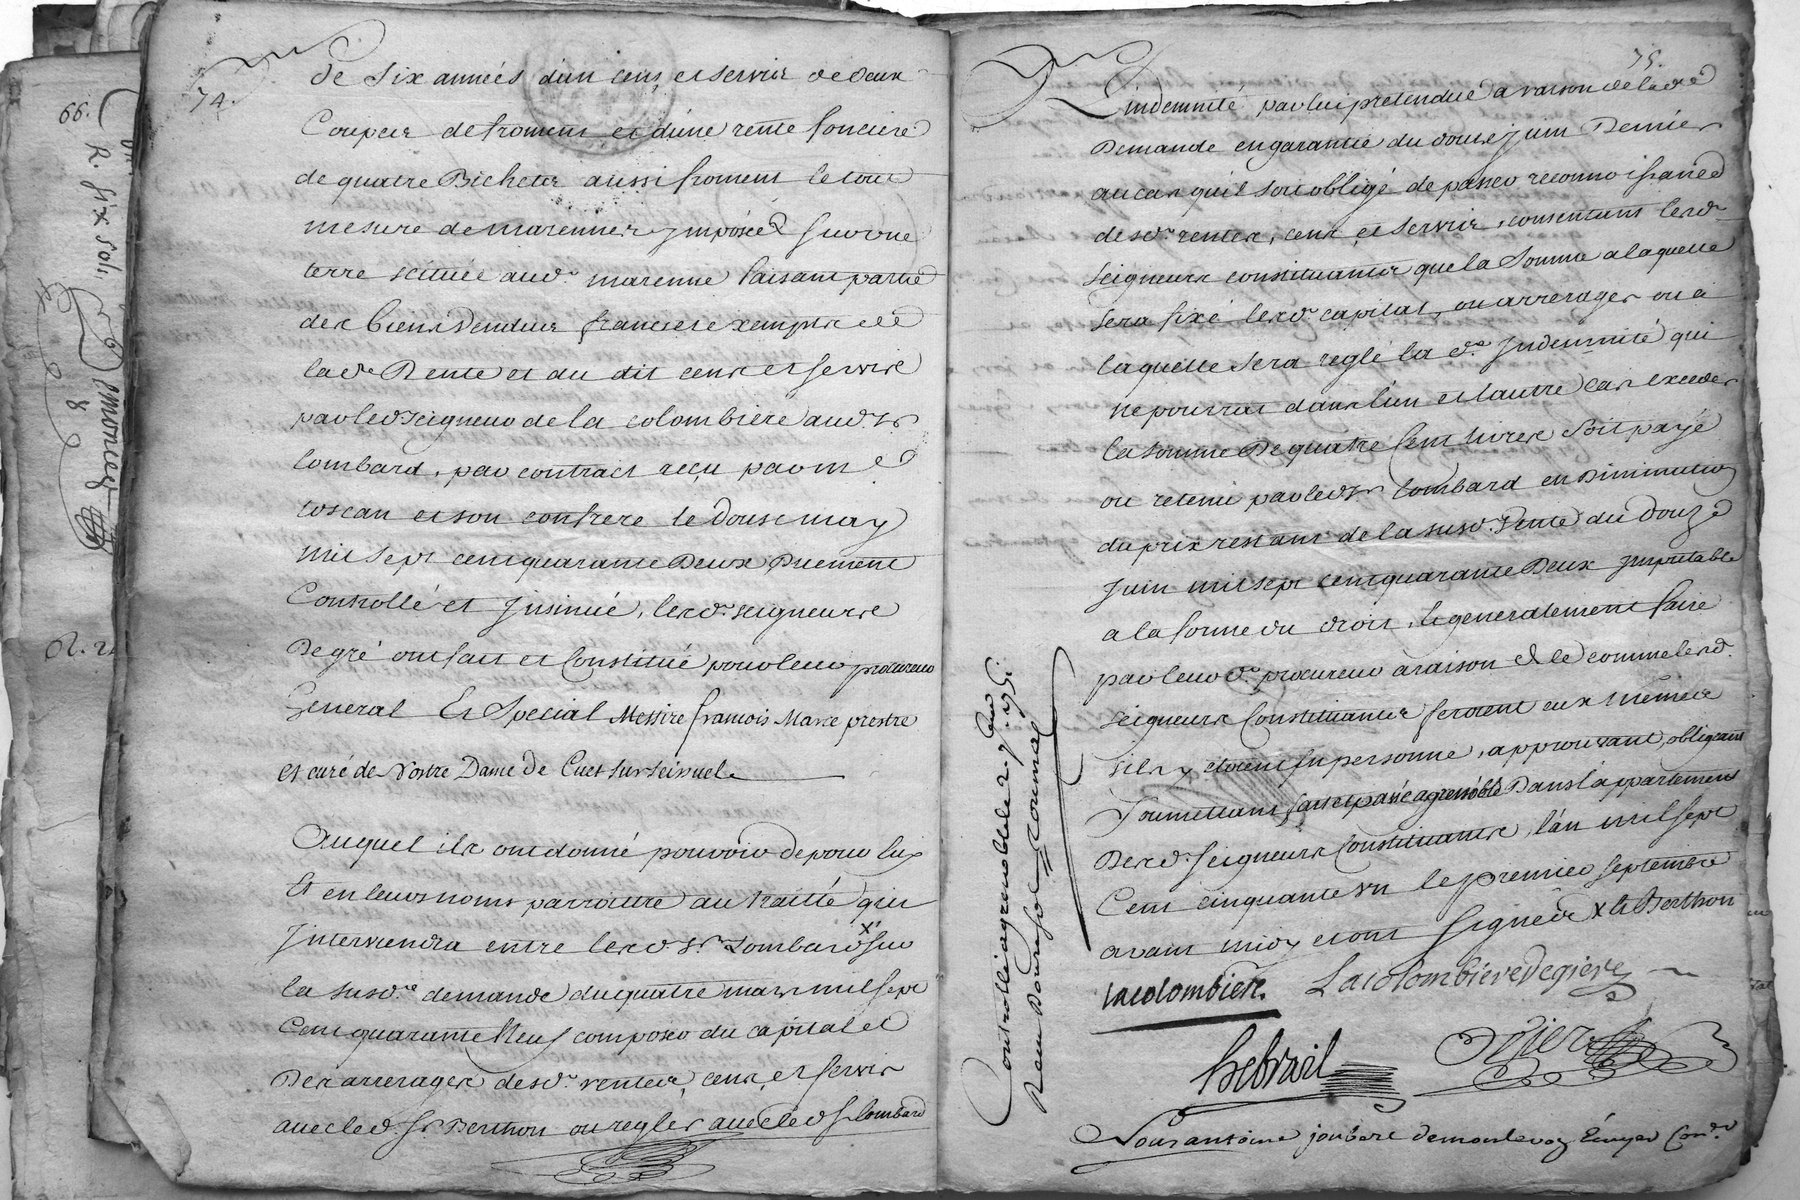 74.
de six années d'un cens et servis de deux
Coupes de froment et d'une rente fonciere
de quatre Bichetes aussi froment le tout
mesure de marennes jmposée sur une
terre scituée aud. marenne faisant partie
des biens vendus francs et exempts de
la de Rente et du dit cens et servis
par led seigneur de la colombiere aud. sr
Lombard, par contract reçu par me
toscan et son confrere le Douse may
mil sept cent quarante Deux Duement
Controllé et jnsinué, lesd. seigneurs
De gré ont fait et Constitué pour leur procureur
General Et Special Messire francois Marce prestre
et curé de Nostre Dame De Cuet sur seissuel
Auquel ils ont donné pouvoir de pour Eux
Et en leurs noms parroitre au traitté qui
jnterviendra entre lesd sr Lombard x sur
la susd. demande du quatre mars mil sept
Cent quarante Neuf composer du capital et
Des arrerages desd. rentes, cens, et servis
avec led sr Berthon ou regler avec led sr lombard
75.
L'indemnité par lui pretendue a raison de la de
Demande en garantie du douse juin Dernier
au cas qu'il soit obligé de passer reconnoissance
desd. rentes, cens et servis, consentant lesd.
seigneurs constituants que la Somme a laquelle
sera fixé lesd. capital, ou arrerages ou a
laquelle sera reglé la de jndemnité qui
ne pourras dans l'un et l'autre cas exceder
la somme De quatre Cent livres Soit payé
ou retenu par led sr Lombard en Diminution
du prix restant de la susd. Vente du Douze
juin mil sept cent quarante Deux jmputable
a la forme du droit, et generalement faire
par leur d. procureur a raison de ce comme lesd.
seigneurs Constituants feroient eux mêmes
s'ils y etoient en personne, approuvant, obligeant
Soumettant, fait et passé a grenoble Dans l'appartement
Desd. seigneurs Constituants, l'an mil sept
Cent cinquante un le premier septembre
avant midy et ont Signés x et Berthon
Lacolombiere. Lacolombiere Degiere
hebrail
Nous antoine joubert demontevoz Ecuyer Con.er
Controlle a grenoble le 2. 7bre 1751.
66.
R. six sols